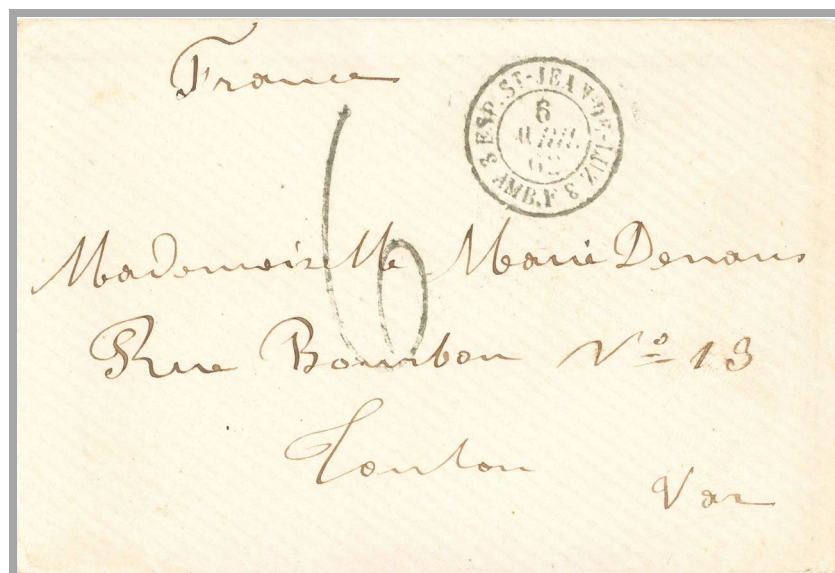 France
3 ESP. ST-JEAN-DE-LUZ 3
6
AVRIL
62
AMB. F
6
Mademoiselle Marie Denans
Rue Bourbon Nº 13
Toulon
Var